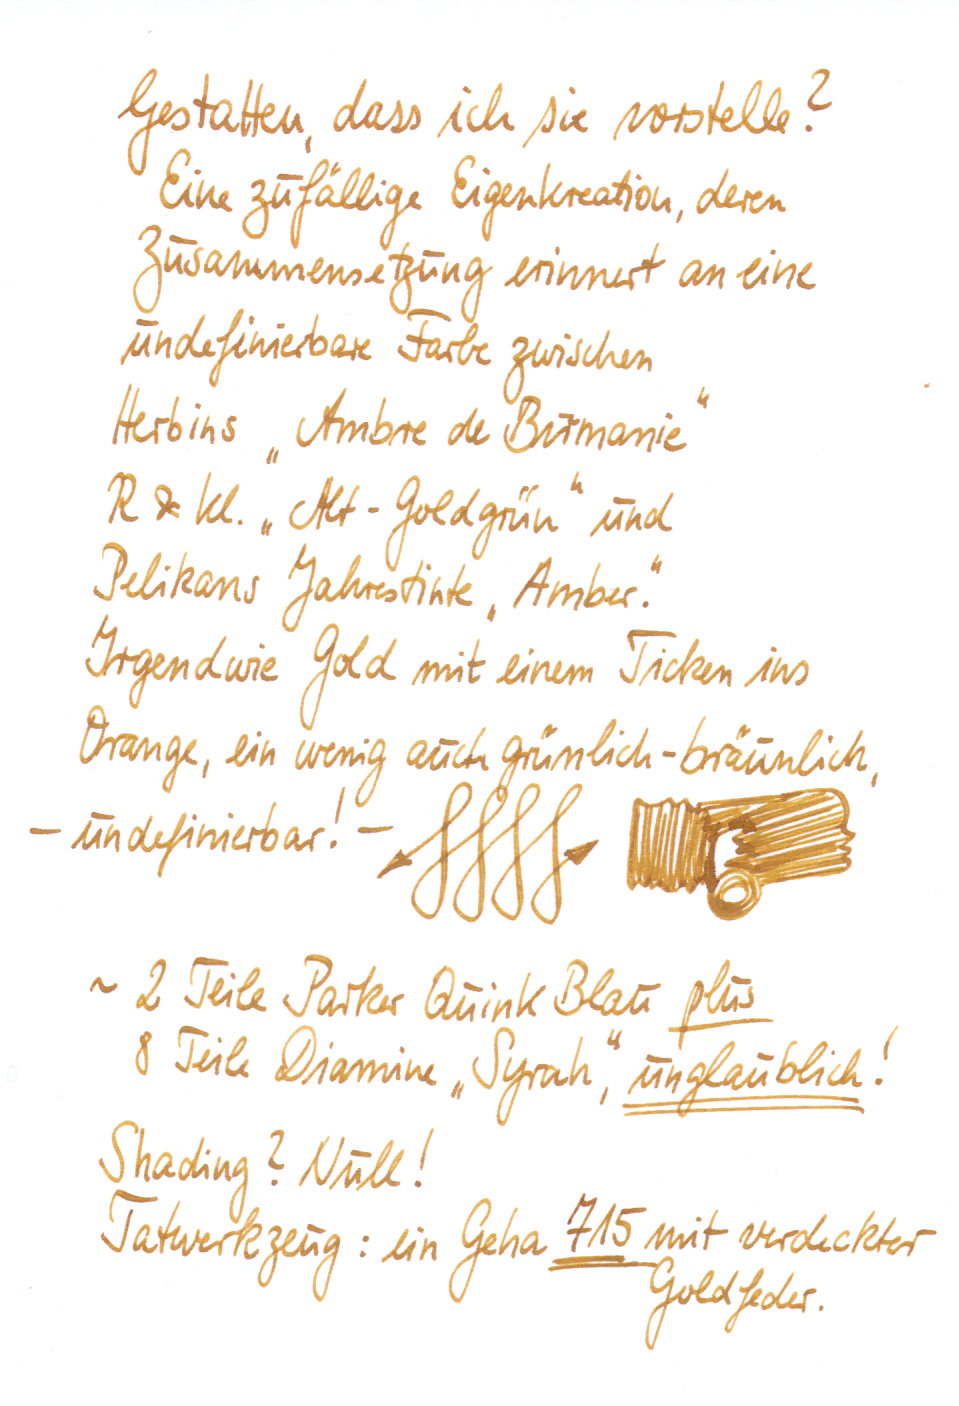 Gestatten, dass ich sie vorstelle?
Eine zufällige Eigenkreation, deren
Zusammensetzung erinnert an eine
undefinierbare Farbe zwischen
Herbins „Ambre de Burmanie“
R & Kl. „Alt-Goldgrün“ und
Pelikans Jahrestinte „Amber.“
Irgendwie Gold mit einem Ticken ins
Orange, ein wenig auch grünlich-bräunlich,
– undefinierbar! –
~ 2 Teile Parker Quink Blau plus
8 Teile Diamine „Syrah“, unglaublich!
Shading? Null!
Tatwerkzeug: ein Geha 715 mit verdeckter
Goldfeder.